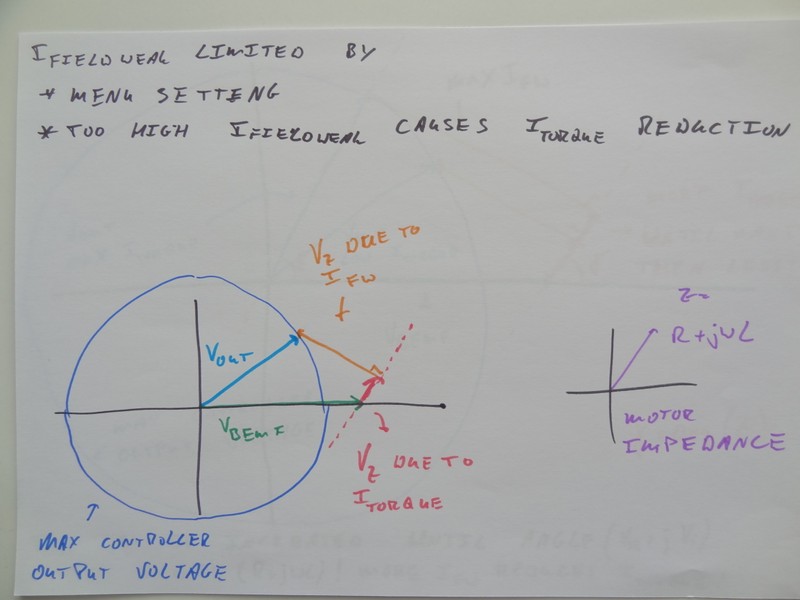 IFIELDWEAK LIMITED BY
* MENU SETTING
* TOO HIGH IFIELDWEAK CAUSES ITORQUE REDUCTION
VZ DUE TO
IFW
VOUT
VBEMF
VZ DUE TO
ITORQUE
MAX CONTROLLER
OUTPUT VOLTAGE
Z=
R+jWL
MOTOR
IMPEDANCE